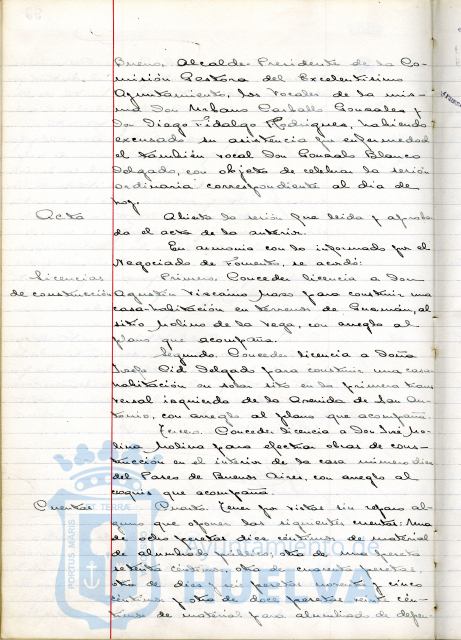 Bueno, Alcalde-Presidente de la Co-
misión Gestora del Excelentísimo
Ayuntamiento, los Vocales de la mis-
ma Don Urbano Carballo Gonzales y
Don Diego Fidalgo Rodrigues, habiendo
excusado su asistencia por enfermedad
el también vocal Don Gonzalo Blanco
Delgado, con objeto de celebrar la sesión
ordinaria correspondiente al día de
hoy.
Acta
Abierta la sesión fue leída y aproba-
da el acta de la anterior.
En armonía con lo informado por el
Negociado de Fomento, se acordó:
Licencias
de construcción
Primero. Conceder licencia a Don
Agustín Viscaino para construir una
casa-habitación en terrenos de Guzmán, al
sitio Molino de la Vega, con arreglo al
plano que acompaña.
Segundo. Conceder licencia a Doña
Josefa Cid Delgado para construir una casa
habitación en solar sito en la primera trans
versal izquierda de la Avenida de San An-
tonio, con arreglo al plano que acompaña.
Tercero. Conceder licencia a Don José Mo-
lina Molina para efectuar obras de cons-
trucción en el interior de la casa número
del Paseo de Buenos Aires, con arreglo al
croquis que acompaña.
Cuentas
Cuarto. Tener por vistas sin reparo al-
guno que oponer las siguientes cuentas: Una
de ocho pesetas diez céntimos de material
de alumbrado para; otra de una peseta
setenta céntimos; otra de cuarenta pesetas;
otra de pesetas noventa y cinco
céntimos y otra de doce pesetas veinte cén-
timos de material para alumbrado de depen-
PORTUS MARIS
TERRAE
Ayuntamiento de
HUELVA